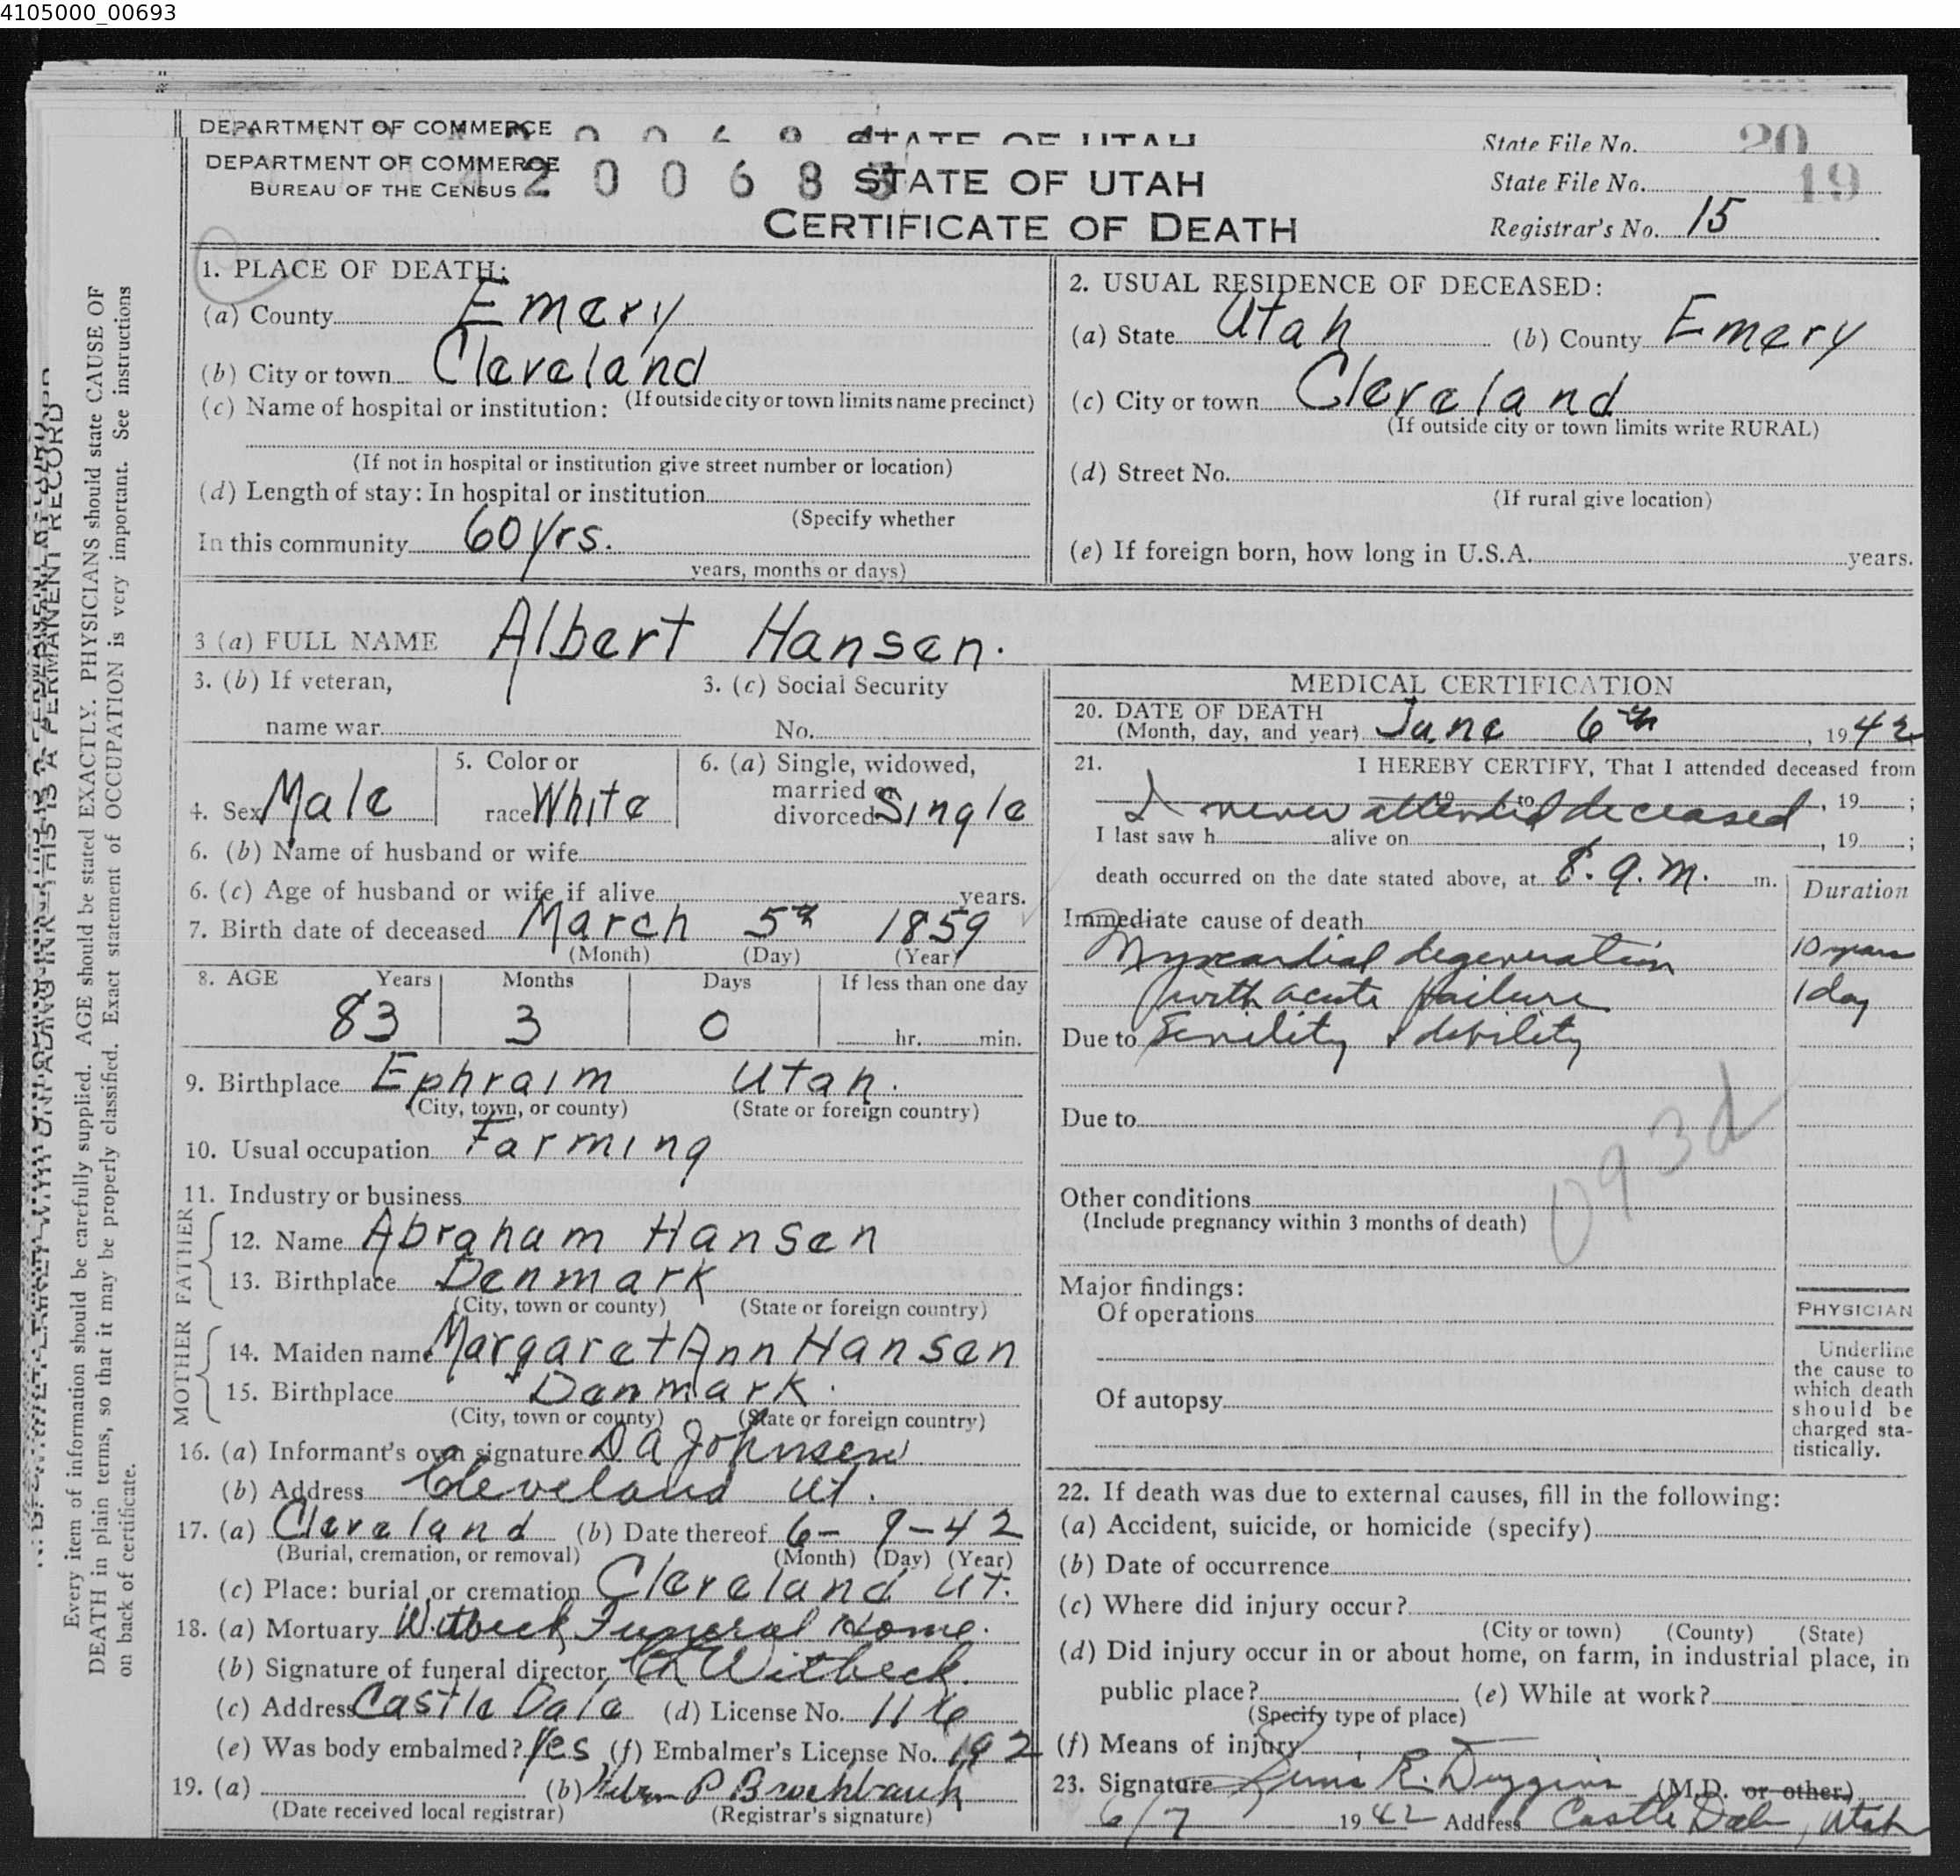 4105000_00693
DEPARTMENT OF COMMERCE
STATE OF UTAH
State File No. 20
DEPARTMENT OF COMMERCE
BUREAU OF THE CENSUS
2 0 0 6 8
STATE OF UTAH
State File No. 19
CERTIFICATE OF DEATH
Registrar's No. 15
1. PLACE OF DEATH:
(a) County Emery
(b) City or town Cleveland
(If outside city or town limits name precinct)
(c) Name of hospital or institution:
(If not in hospital or institution give street number or location)
(d) Length of stay: In hospital or institution
(Specify whether
In this community 60 yrs.
years, months or days)
2. USUAL RESIDENCE OF DECEASED:
(a) State Utah (b) County Emery
(c) City or town Cleveland
(If outside city or town limits write RURAL)
(d) Street No.
(If rural give location)
(e) If foreign born, how long in U.S.A. years.
3 (a) FULL NAME Albert Hansen.
3. (b) If veteran,
name war
3. (c) Social Security
No.
4. Sex Male
5. Color or
race White
6. (a) Single, widowed,
married or
divorced Single
6. (b) Name of husband or wife
6. (c) Age of husband or wife if alive years.
7. Birth date of deceased March 5th 1859
(Month) (Day) (Year)
8. AGE Years Months Days If less than one day
83 3 0 hr. min.
9. Birthplace Ephraim Utah.
(City, town, or county) (State or foreign country)
10. Usual occupation Farming
11. Industry or business
FATHER
12. Name Abraham Hansen
13. Birthplace Denmark
(City, town or county) (State or foreign country)
MOTHER
14. Maiden name Margaret Ann Hansen
15. Birthplace Denmark.
(City, town or county) (State or foreign country)
16. (a) Informant's own signature D A Johnsen
(b) Address Cleveland Ut.
17. (a) Cleveland (b) Date thereof 6-9-42
(Burial, cremation, or removal) (Month) (Day) (Year)
(c) Place: burial or cremation Cleveland Ut.
18. (a) Mortuary Witbeck Funeral Home.
(b) Signature of funeral director Witbeck.
(c) Address Castle Dale (d) License No. 116
(e) Was body embalmed? Yes (f) Embalmer's License No. 192
19. (a) (b) P Brockbank
(Date received local registrar) (Registrar's signature)
MEDICAL CERTIFICATION
20. DATE OF DEATH
(Month, day, and year) June 6th, 1942
21. I HEREBY CERTIFY, That I attended deceased from
I never attended deceased, 19 ;
19 to
I last saw h alive on , 19 ;
death occurred on the date stated above, at 8. a.m. m.
Duration
Immediate cause of death
Myocardial degeneration 10 years
with acute failure 1 day
Due to Senility & debility
Due to
093d
Other conditions
(Include pregnancy within 3 months of death)
Major findings:
Of operations
Of autopsy
PHYSICIAN
Underline
the cause to
which death
should be
charged sta-
tistically.
22. If death was due to external causes, fill in the following:
(a) Accident, suicide, or homicide (specify)
(b) Date of occurrence
(c) Where did injury occur?
(City or town) (County) (State)
(d) Did injury occur in or about home, on farm, in industrial place, in
public place? (e) While at work?
(Specify type of place)
(f) Means of injury
23. Signature R. Duggins (M.D. or other)
6/7 1942 Address Castle Dale, Utah
Every item of information should be carefully supplied. AGE should be stated EXACTLY. PHYSICIANS should state CAUSE OF
DEATH in plain terms, so that it may be properly classified. Exact statement of OCCUPATION is very important. See instructions
on back of certificate.